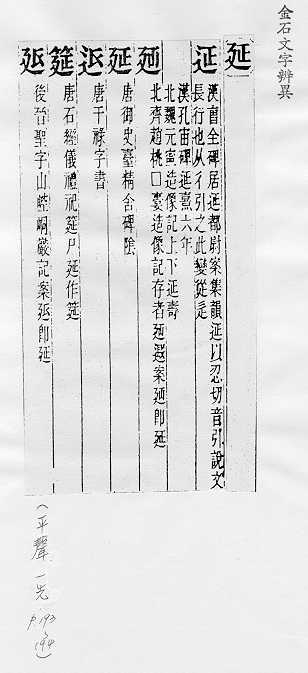 金石文字辨異
延
延 漢曹全碑居延都尉案集韻延以忍切音引說文
長行也从彳引之此變從辵
漢孔宙碑延熹六年
北魏元寧造像記上下延壽
北齊趙桃口妻造像記存者延遐案延即延
延 唐御史臺精舍碑陰
唐干祿字書
筵 唐石經儀禮祝筵尸延作筵
後晉聖字山崆峒巖記案即延
(平聲 一先
P.193
194)